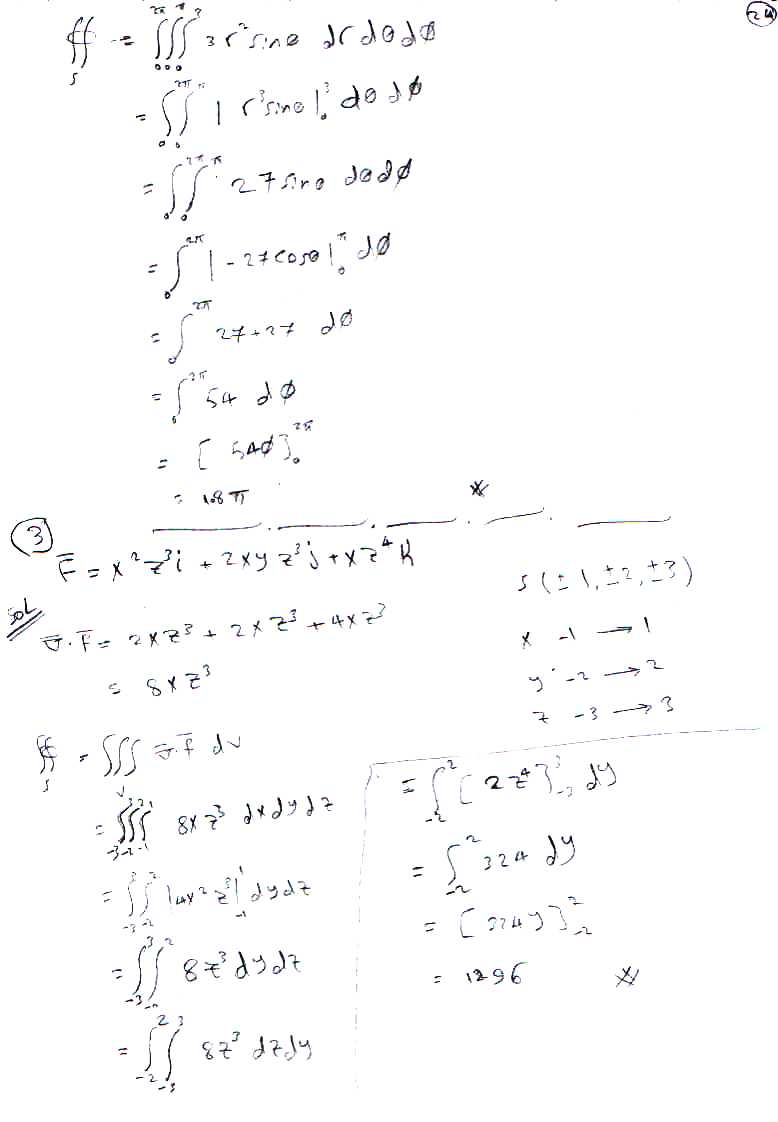 24
∯_S = ∫_0^{2π} ∫_0^π ∫_0^3 3r² sinθ dr dθ dø
= ∫_0^{2π} ∫_0^π | r³ sinθ |_0^3 dθ dø
= ∫_0^{2π} ∫_0^π 27 sinθ dθ dø
= ∫_0^{2π} | -27 cosθ |_0^π dø
= ∫_0^{2π} 27+27 dø
= ∫_0^{2π} 54 dø
= [ 54ø ]_0^{2π}
= 108 π
③
F̄ = x² z³ i + 2xy z³ j + x z⁴ k
S (±1, ±2, ±3)
Sol
∇̄·F̄ = 2xz³ + 2xz³ + 4xz³
= 8xz³
x -1 → 1
y -2 → 2
z -3 → 3
∯_S = ∭_V ∇̄·F̄ dv
= ∫_{-3}^3 ∫_{-2}^2 ∫_{-1}^1 8xz³ dx dy dz
= ∫_{-3}^3 ∫_{-2}^2 | 4x² z³ |_{-1}^1 dy dz
= ∫_{-3}^3 ∫_{-2}^2 8z³ dy dz
= ∫_{-2}^2 ∫_{-3}^3 8z³ dz dy
= ∫_{-2}^2 [ 2z⁴ ]_{-3}^3 dy
= ∫_{-2}^2 324 dy
= [ 324y ]_{-2}^2
= 1296